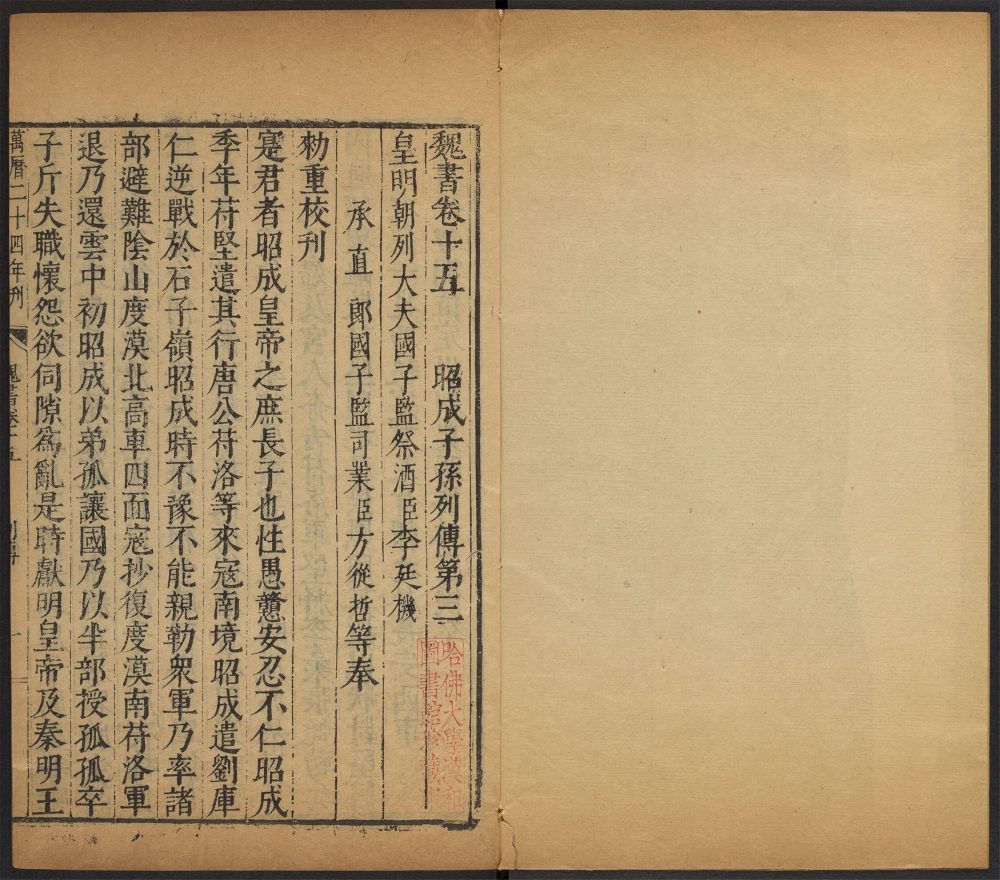 魏書卷十五 昭成子孫列傳第三
皇明朝列大夫國子監祭酒臣李廷機
承直郎國子監司業臣方從哲等奉
勑重校刊
寔君者昭成皇帝之庶長子也性愚戇安忍不仁昭成
季年苻堅遣其行唐公苻洛等來寇南境昭成遣劉庫
仁逆戰於石子嶺昭成時不豫不能親勒衆軍乃率諸
部避難陰山度漠北高車四面寇抄復度漠南苻洛軍
退乃還雲中初昭成以弟孤讓國乃以半部授孤孤卒
子斤失職懷怨欲伺隙爲亂是時獻明皇帝及秦明王
萬曆二十四年刊
魏書卷十五
列傳
一
哈佛大學漢和
圖書館珍藏印